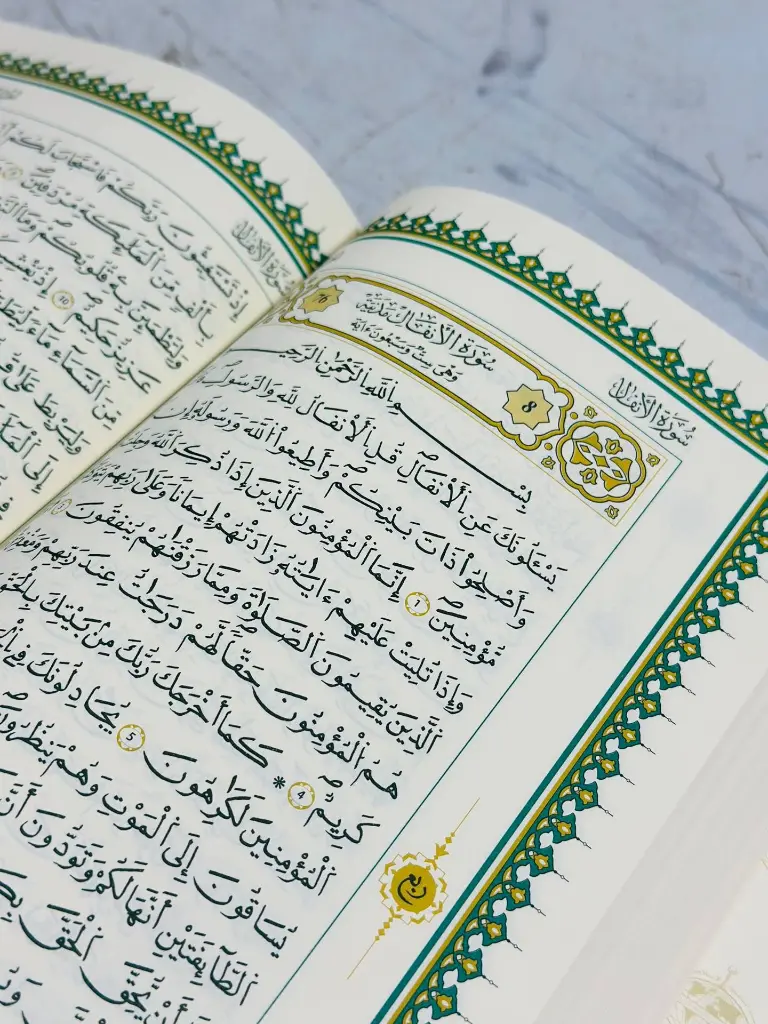 سُورَةُ الْأَنفَالِ
76
سُورَةُ الْأَنفَالِ مَدَنِيَّة
وَهِيَ سِتٌّ وَسَبْعُونَ ءَايَة
8
بِسْمِ اللَّهِ الرَّحْمَٰنِ
يَسْـَٔلُونَكَ عَنِ الْأَنفَالِ قُلِ الْأَنفَالُ لِلَّهِ وَالرَّسُولِ
وَأَصْلِحُوا۟ ذَاتَ بَيْنِكُمْ وَأَطِيعُوا۟ اللَّهَ وَرَسُولَهُ إِن
مُّؤْمِنِينَ 1 إِنَّمَا الْمُؤْمِنُونَ الَّذِينَ إِذَا ذُكِرَ اللَّهُ
وَإِذَا تُلِيَتْ عَلَيْهِمْ ءَايَٰتُهُ زَادَتْهُمْ إِيمَانًا وَعَلَىٰ رَبِّهِمْ
الَّذِينَ يُقِيمُونَ الصَّلَوٰةَ وَمِمَّا رَزَقْنَٰهُمْ يُنفِقُونَ 3
هُمُ الْمُؤْمِنُونَ حَقًّا لَّهُمْ دَرَجَٰتٌ عِندَ رَبِّهِمْ
كَرِيمٌ 4 * كَمَا أَخْرَجَكَ رَبُّكَ مِن بَيْتِكَ
الْمُؤْمِنِينَ لَكَٰرِهُونَ 5 يُجَٰدِلُونَكَ فِي
يُسَاقُونَ إِلَى الْمَوْتِ وَهُمْ يَنظُرُونَ
الطَّآئِفَتَيْنِ أَنَّهَا لَكُمْ وَتَوَدُّونَ أَنَّ
أَنْ يُّحِقَّ الْحَقَّ
رُبُع
سُورَةُ الْأَنفَالِ
إِذْ تَسْتَغِيثُونَ رَبَّكُمْ فَاسْتَجَابَ لَكُمْ
بِأَلْفٍ مِّنَ الْمَلَٰٓئِكَةِ مُرْدَفِينَ
وَلِتَطْمَئِنَّ بِهِ قُلُوبُكُمْ وَمَا
عَزِيزٌ حَكِيمٌ 10 إِذْ
مِّنَ السَّمَآءِ مَآءً
وَلِيَرْبِطَ عَلَىٰ
إِلَى